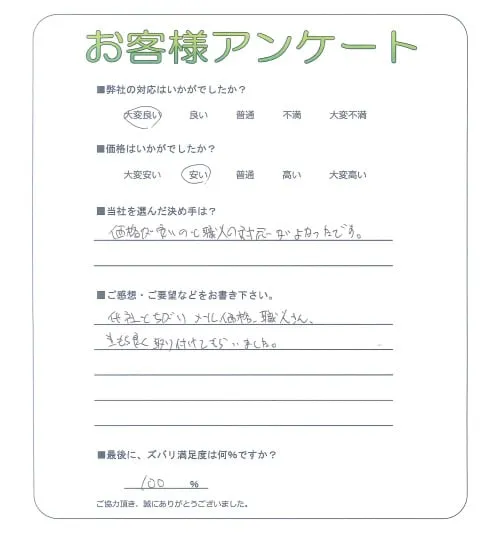 お客様アンケート
■弊社の対応はいかがでしたか？
大変良い 良い 普通 不満 大変不満
■価格はいかがでしたか？
大変安い 安い 普通 高い 大変高い
■当社を選んだ決め手は？
価格が安いのと職人の対応がよかったです。
■ご感想・ご要望などをお書き下さい。
他社とちがい メール価格、職人さん、
気もち良く取り付けてもらいました。
■最後に、ズバリ満足度は何％ですか？
100 %
ご協力頂き、誠にありがとうございました。